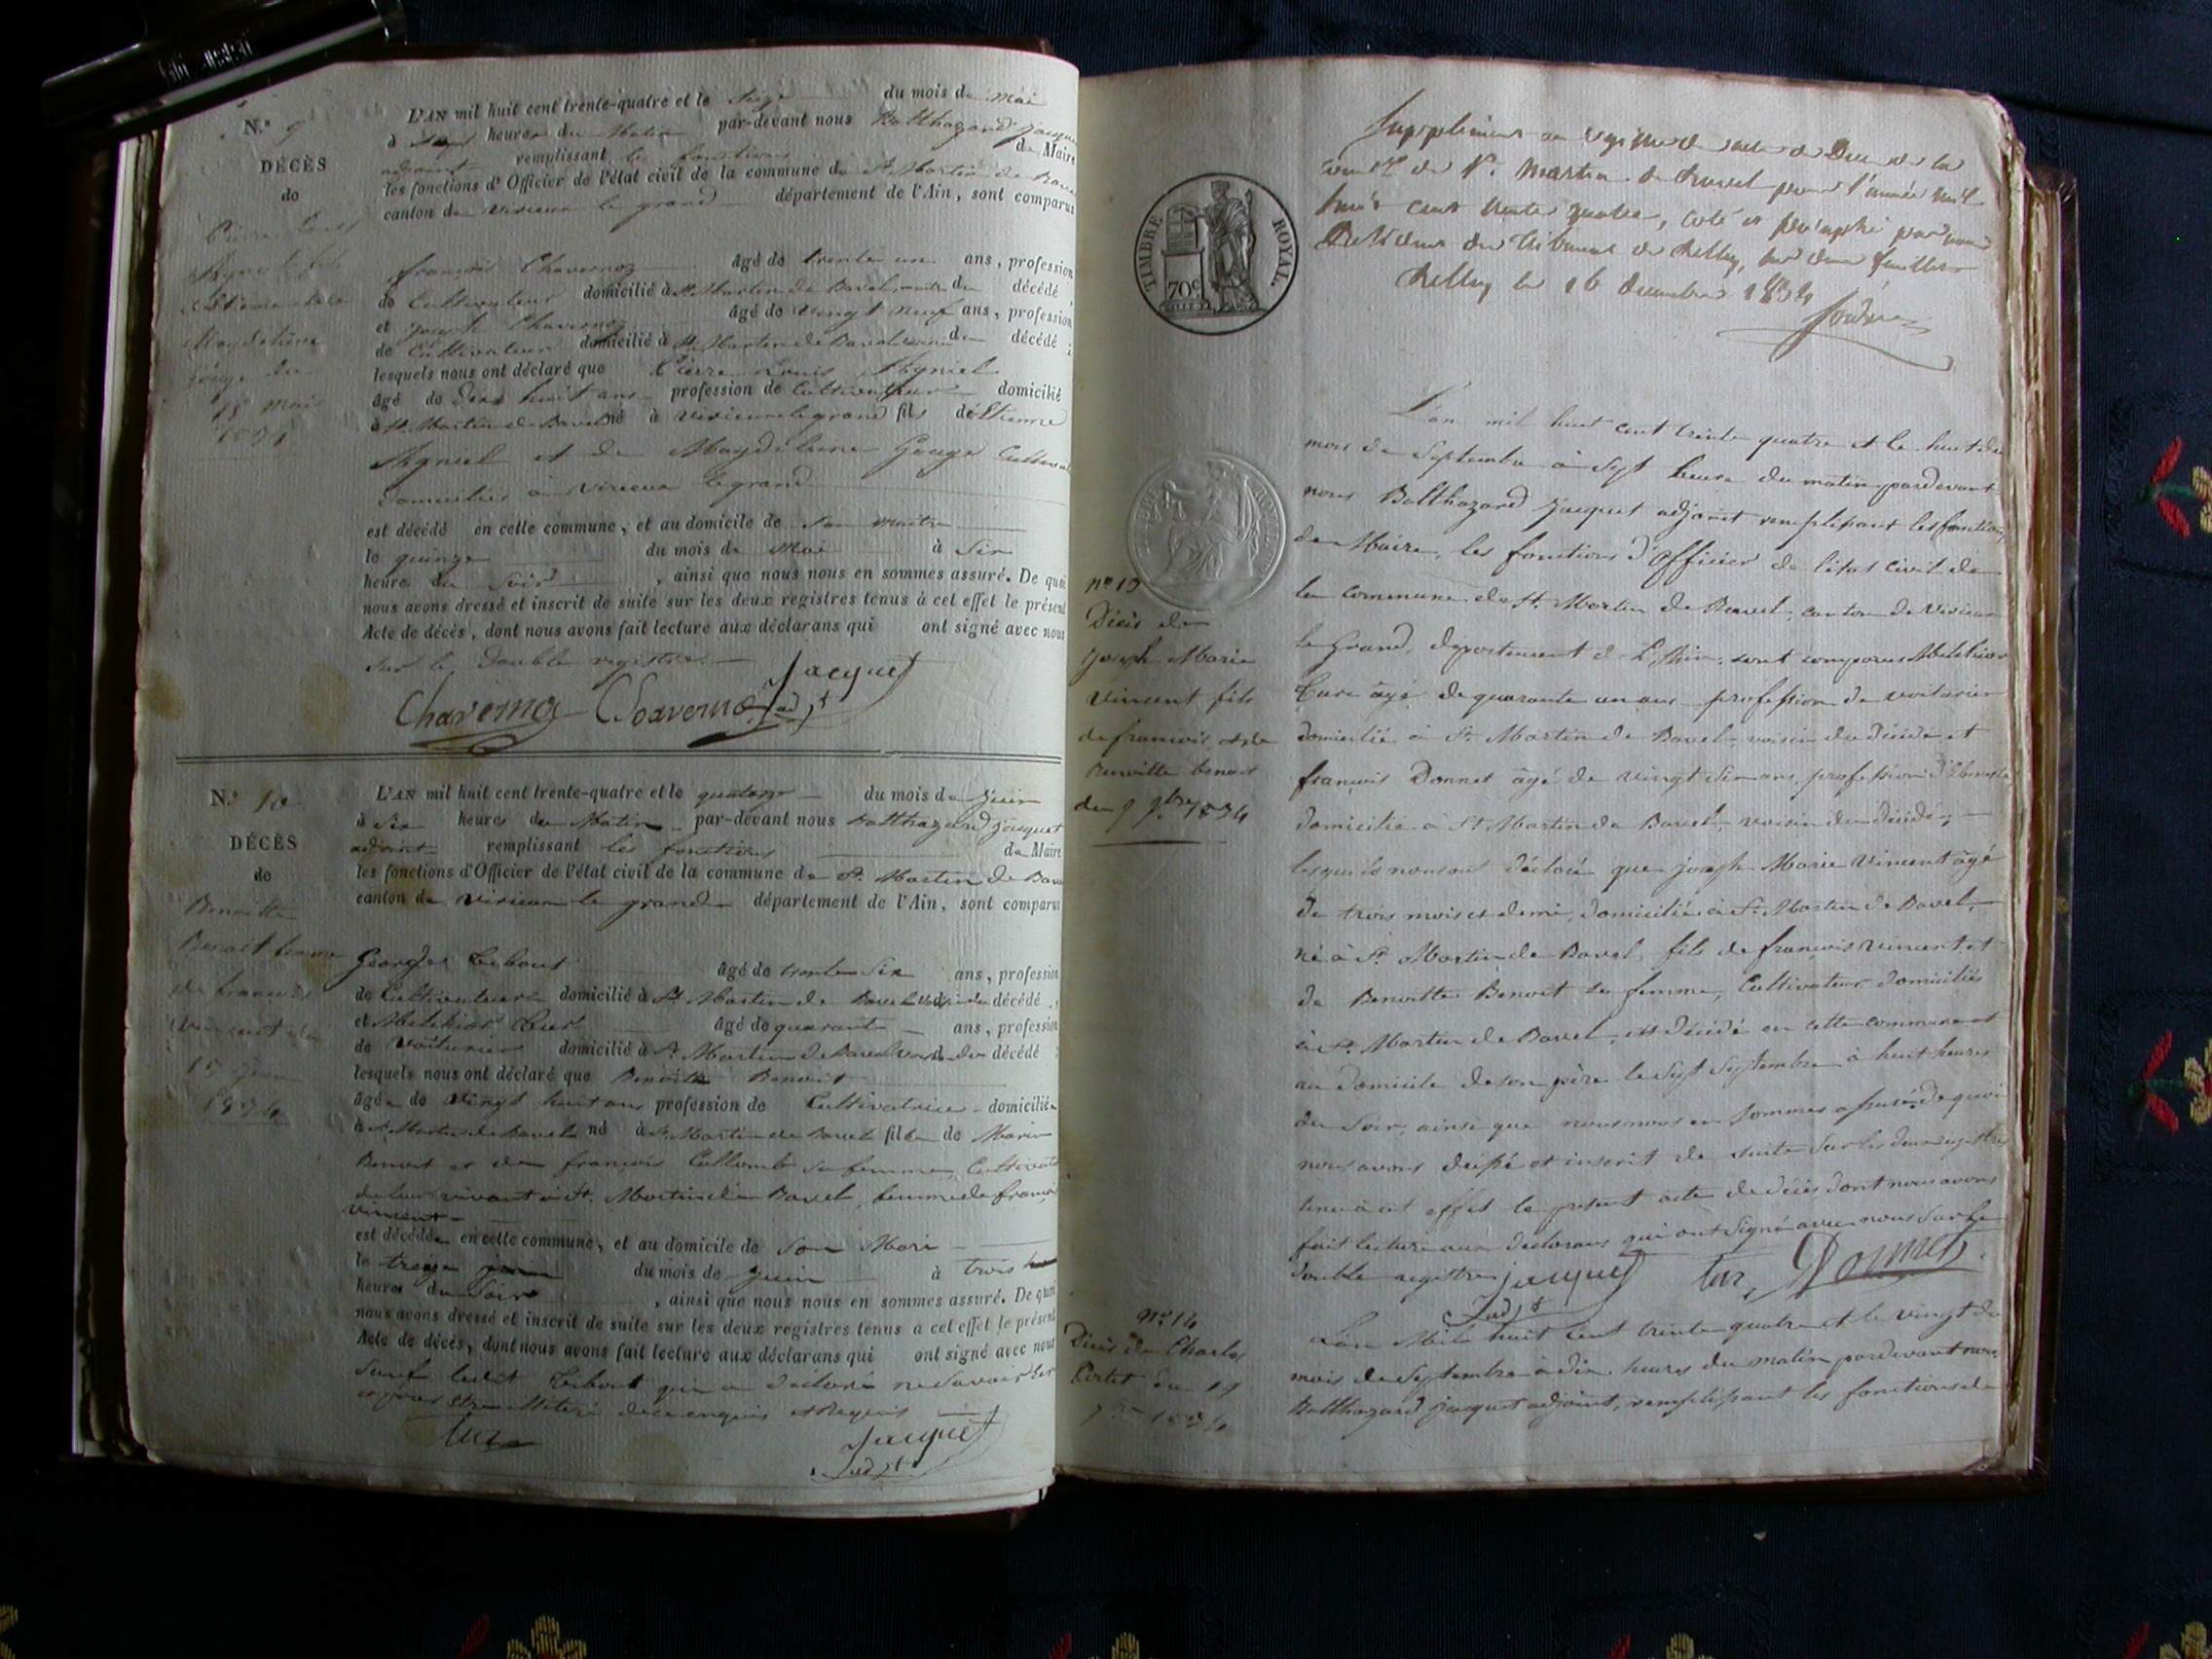 N.o 9
DÉCÈS
de
Pierre Louis
fils
d'Etienne et de
Magdelaine
Gouge du
15 mai
1834
L'AN mil huit cent trente-quatre et le seize du mois de mai
à sept heures du Matin par-devant nous Balthazard Jacquet
adjoint remplissant les fonctions de Maire
les fonctions d'Officier de l'état civil de la commune de St. Martin de Bavel
canton de virieux le grand département de l'Ain, sont comparus
françois Chavernoz âgé de trente un ans, profession
de Cultivateur domicilié à St. Martin de Bavel du décédé,
et joseph Chavernoz âgé de vingt neuf ans, profession
de Cultivateur domicilié à St. Martin de Bavel du décédé ;
lesquels nous ont déclaré que Pierre Louis
âgé de Dix huit ans profession de Cultivateur domicilié
à St. Martin de Bavel né à virieux le grand fils d'Etienne
et de Magdelaine Gouge
domiciliés à Virieux le grand
est décédé en cette commune, et au domicile de son maitre
le quinze du mois de Mai à Six
heure du Soir, ainsi que nous nous en sommes assuré. De quoi
nous avons dressé et inscrit de suite sur les deux registres tenus à cet effet le présent
Acte de décès, dont nous avons fait lecture aux déclarans qui ont signé avec nous
sur le double registre.
Jacquet
Chavernoz Chavernoz adjt
N.o 10
DÉCÈS
de
Benoitte
Benoit femme
de françois
Vincent du
13 juin
1834
L'AN mil huit cent trente-quatre et le quatorze du mois de juin
à Six heures du Matin par-devant nous Balthazard Jacquet
adjoint remplissant les fonctions de Maire
les fonctions d'Officier de l'état civil de la commune de St. Martin de Bavel
canton de virieux le grand département de l'Ain, sont comparus
George âgé de trente Six ans, profession
de Cultivateur domicilié à St. Martin de Bavel voisin du décédé,
et Melchior Cur âgé de quarante ans, profession
de Voiturier domicilié à St. Martin de Bavel voisin du décédé ;
lesquels nous ont déclaré que Benoitte Benoit
âgée de Vingt huit ans profession de Cultivatrice domiciliée
à St. Martin de Bavel né à St. Martin de Bavel fille de Marin
Benoit et de françoise Collomb sa femme,
de leur vivant à St. Martin de Bavel, femme de françois
Vincent
est décédée en cette commune, et au domicile de son Mari
le treize du mois de juin à trois
heures du Soir, ainsi que nous nous en sommes assuré. De quoi
nous avons dressé et inscrit de suite sur les deux registres tenus à cet effet le présent
Acte de décès, dont nous avons fait lecture aux déclarans qui ont signé avec nous
Sauf ledit qui a déclaré ne Savoir
de ce enquis et Requis
Jacquet
adjt
TIMBRE ROYAL.
70c
Supplément au registre des actes de Décès de la
de St. Martin de Bavel pour l'année mil
huit cent trente quatre, coté et paraphé par nous
Président du Tribunal de Belley, sur deux feuillets
Belley le 16 decembre 1834
no 13
Décès de
joseph Marie
Vincent fils
de francois et de
Benoitte benoit
du 7 7bre 1834
L'an mil huit cent trente quatre et le huit du
mois de Septembre à Sept heure du matin pardevant
nous Balthazard Jacquet adjoint remplissant les fonctions
de Maire, les fonctions d'Officier de l'état civil de
la Commune de St. Martin de Bavel, canton de Virieux
le Grand, departement de L'Ain, sont comparus Melchior
Cur âgé de quarante un ans profession de voiturier
domicilié à St. Martin de Bavel voisin du décédé et
françois Donnet âgé de vingt Six ans, profession d'
domicilié à St Martin de Bavel, voisin du décédé,
lesquels nous ont déclaré que joseph Marie Vincent âgé
de trois mois et demi, domicilié à St. Martin de Bavel,
né à St. Martin de Bavel, fils de françois vincent et
de Benoitte Benoit sa femme, Cultivateur domiciliés
à St. Martin de Bavel, est décédé en cette commune et
au domicile de son père le Sept Septembre à huit heures
du Soir, ainsi que nous nous en Sommes assuré. De quoi
nous avons dressé et inscrit de suite Sur les deux registres
tenu à cet effet le present acte de décès dont nous avons
fait lecture aux declarans qui ont Signé avec nous sur le
double registre
jacquet Cur Donnet
adjt
no 14
Décès de Charles
du 19
7bre 1834
L'an Mil huit cent trente quatre et le vingt du
mois de Septembre à dix heures du matin pardevant nous
Balthazard Jacquet adjoint, remplissant les fonctions de